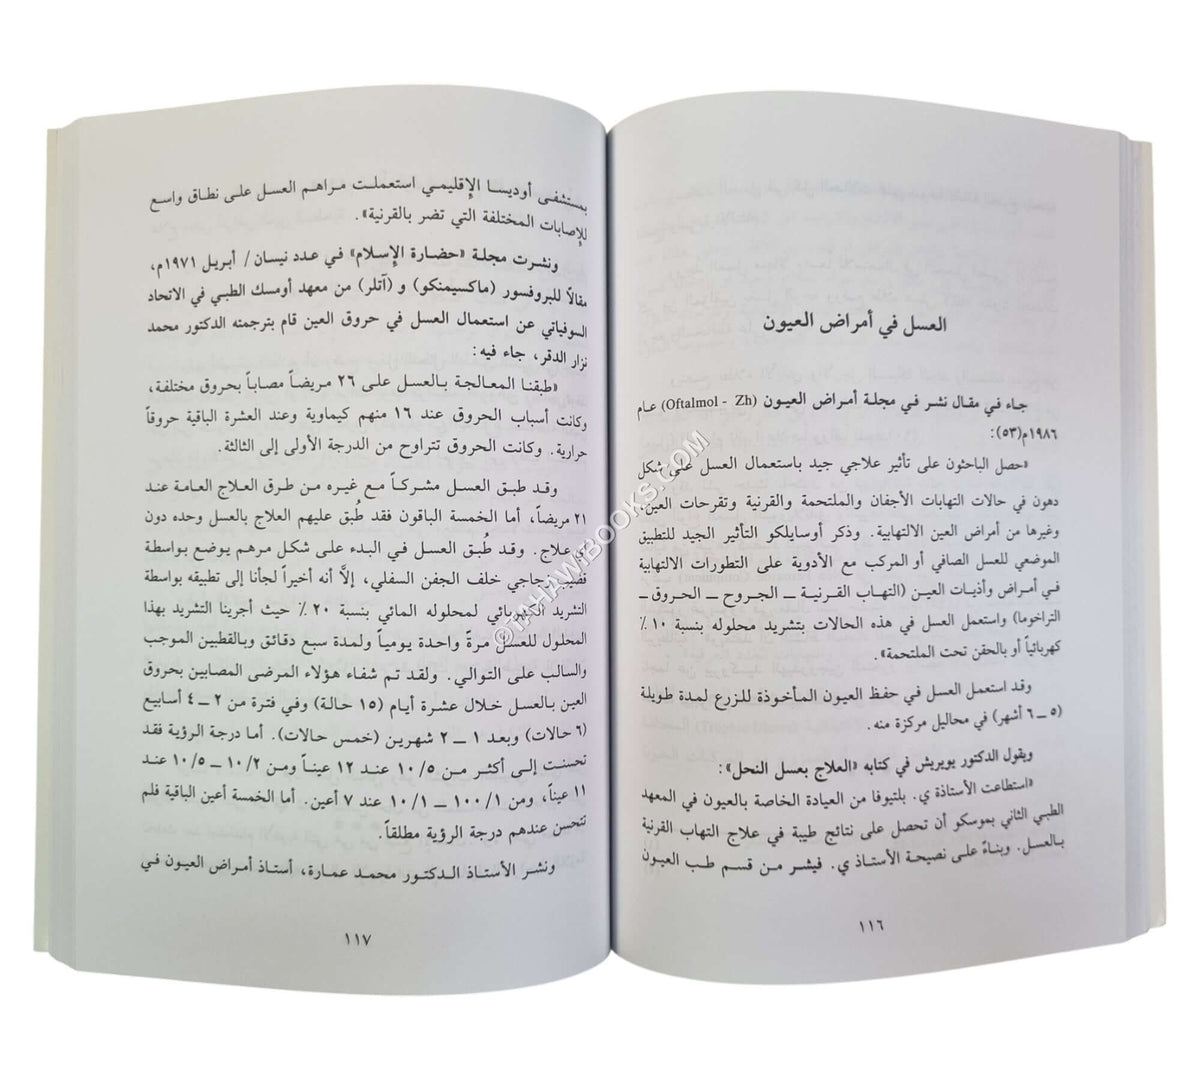 العسل في أمراض العيون
جاء في مقال نشر في مجلة أمراض العيون (Oftalmol - Zh) عام
١٩٨٦م(٥٣):
«حصل الباحثون على تأثير علاجي جيد باستعمال العسل على شكل
دهون في حالات التهابات الأجفان والملتحمة والقرنية وتقرحات العين،
وغيرها من أمراض العين الالتهابية. وذكر أوسايلكو التأثير الجيد للتطبيق
الموضعي للعسل الصافي أو المركب مع الأدوية على التطورات الالتهابية
في أمراض وأذيات العين (التهاب القرنية ــ الجروح ــ الحروق ــ
التراخوما) واستعمل العسل في هذه الحالات بتشريد محلوله بنسبة ١٠٪
كهربائياً أو بالحقن تحت الملتحمة».
وقد استعمل العسل في حفظ العيون المأخوذة للزرع لمدة طويلة
(٥ ــ ٦ أشهر) في محاليل مركزة منه.
ويقول الدكتور يويريش في كتابه «العلاج بعسل النحل»:
«استطاعت الأستاذة ي. بلتيوفا من العيادة الخاصة بالعيون في المعهد
الطبي الثاني بموسكو أن تحصل على نتائج طيبة في علاج التهاب القرنية
بالعسل. وبناءً على نصيحة الأستاذ ي. فيشر من قسم طب العيون
١١٦
بمستشفى أوديسا الإقليمي استعملت مراهم العسل على نطاق واسع
للإصابات المختلفة التي تضر بالقرنية».
ونشرت مجلة «حضارة الإسلام» في عدد نيسان/ أبريل ١٩٧١م،
مقالاً للبروفسور (ماكسيمنكو) و (آتلر) من معهد أومسك الطبي في الاتحاد
السوفياتي عن استعمال العسل في حروق العين قام بترجمته الدكتور محمد
نزار الدقر، جاء فيه:
«طبقنا المعالجة بالعسل على ٢٦ مريضاً مصاباً بحروق مختلفة،
وكانت أسباب الحروق عند ١٦ منهم كيماوية وعند العشرة الباقية حروقاً
حرارية. وكانت الحروق تتراوح من الدرجة الأولى إلى الثالثة.
وقد طبق العسل مشركاً مع غيره من طرق العلاج العامة عند
٢١ مريضاً، أما الخمسة الباقون فقد طُبق عليهم العلاج بالعسل وحده دون
أي علاج. وقد طُبق العسل في البدء على شكل مرهم يوضع بواسطة
قضيب زجاجي خلف الجفن السفلي، إلاَّ أنه أخيراً لجأنا إلى تطبيقه بواسطة
التشريد الكهربائي لمحلوله المائي بنسبة ٢٠٪ حيث أجرينا التشريد بهذا
المحلول للعسل مرةً واحدة يومياً ولمدة سبع دقائق وبالقطبين الموجب
والسالب على التوالي. ولقد تم شفاء هؤلاء المرضى المصابين بحروق
العين بالعسل خلال عشرة أيام (١٥ حالة) وفي فترة من ٢ ــ ٤ أسابيع
(٦ حالات) وبعد ١ ــ ٢ شهرين (خمس حالات). أما درجة الرؤية فقد
تحسنت إلى أكثر من ١٠/٥ عند ١٢ عيناً ومن ١٠/٢ ــ ١٠/٥ عند
١١ عيناً، ومن ١٠٠/١ ــ ١٠/١ عند ٧ أعين. أما الخمسة أعين الباقية فلم
تتحسن عندهم درجة الرؤية مطلقاً.
ونشر الأستاذ الدكتور محمد عمارة، أستاذ أمراض العيون في
١١٧
©TAHAWIBOOKS.COM